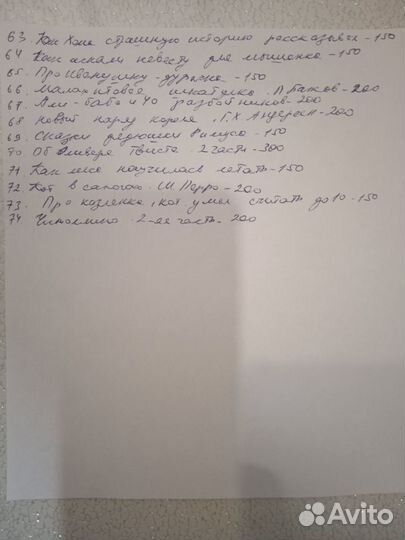 63. Как Хома страшную историю рассказывал - 150
64 Как искали невесту для мышонка - 150
65. Про Иванушку-дурачка - 150
66. Малахитовая шкатулка. П. Бажов - 200
67. Али-баба и 40 разбойников - 200
68 новый наряд короля. Г.Х. Андерсен - 200
69. Сказки дядюшки Римуса - 150
70. Об Оливере Твисте. 2 части - 300
71. Как лиса научилась летать - 150
72. Кот в сапогах. Ш. Перро - 200
73. Про козленка, кот. умел считать до 10 - 150
74 Чиполлино. 2-ая часть - 200
Avito